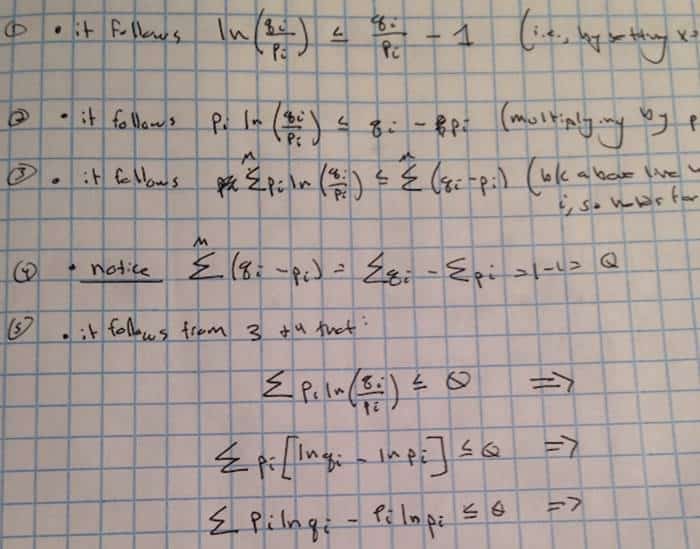 ① • it follows ln(qi/pi) ≤ qi/pi - 1 (i.e., by setting x=
② • it follows pi ln(qi/pi) ≤ qi - pi (multiplying by p
③ • it follows M∑ pi ln(qi/pi) ≤ M∑ (qi-pi) (b/c above line
i, so
④ • notice M∑ (qi - pi) = ∑qi - ∑pi = 1-1 = 0
⑤ • it follows from 3 + 4 that:
∑ pi ln(qi/pi) ≤ 0 =>
∑ pi[ln qi - ln pi] ≤ 0 =>
∑ pi ln qi - pi ln pi ≤ 0 =>